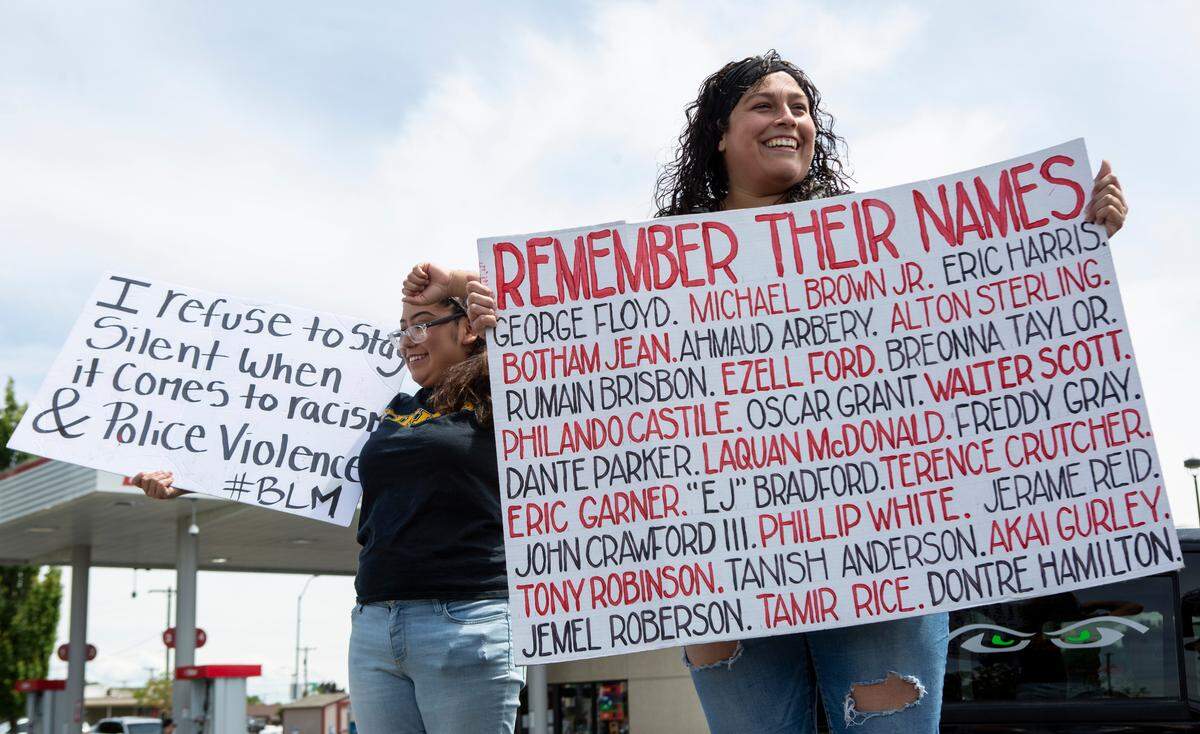 I refuse to stay
Silent when
it comes to racism
& Police Violence
#BLM
REMEMBER THEIR NAMES
GEORGE FLOYD. MICHAEL BROWN JR. ERIC HARRIS.
BOTHAM JEAN. AHMAUD ARBERY. ALTON STERLING.
RUMAIN BRISBON. EZELL FORD. BREONNA TAYLOR.
PHILANDO CASTILE. OSCAR GRANT. WALTER SCOTT.
DANTE PARKER. LAQUAN McDONALD. FREDDY GRAY.
ERIC GARNER. "EJ" BRADFORD. TERENCE CRUTCHER.
JOHN CRAWFORD III. PHILLIP WHITE. JERAME REID.
TONY ROBINSON. TANISH ANDERSON. AKAI GURLEY.
JEMEL ROBERSON. TAMIR RICE. DONTRE HAMILTON.